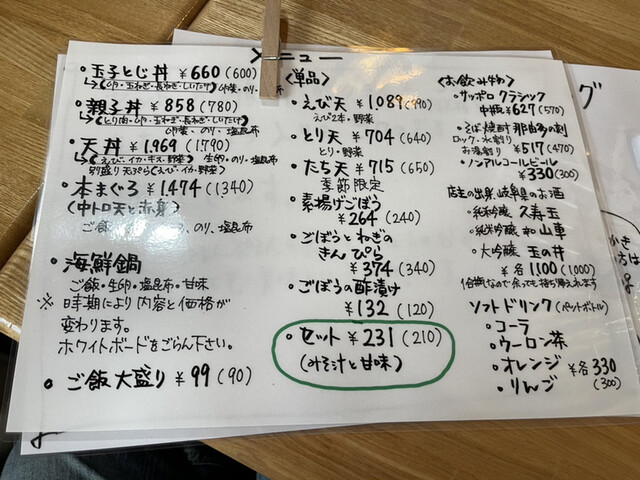 メニュー
・玉子とじ丼 ¥660(600)
・親子丼 ¥858(780)
卵味、のり、塩昆布
・天丼 ¥1,969(1,790)
(えび・イカ・キス・野菜) 生卵・のり・塩昆布
別盛り 天ぷら(えび・イカ・野菜)
・本まぐろ ¥1,474(1,340)
(中トロ天と赤身)
のり、塩昆布
・海鮮鍋
ご飯・生卵・塩昆布・甘味
※時期により内容と価格が
変わります。
ホワイトボードをごらん下さい。
・ご飯大盛り ¥99(90)
(単品)
・えび天 ¥1,089(990)
えび2本・野菜
・とり天 ¥704(640)
とり・野菜
・たち天 ¥715(650)
季節限定
・素揚げごぼう
¥264(240)
・ごぼうとねぎの
きんぴら
¥374(340)
・ごぼうの酢漬け
¥132(120)
・セット ¥231(210)
(みそ汁と甘味)
(お飲み物)
・サッポロ クラシック
中瓶 ¥627(570)
・そば焼酎 那由多の刻
ロック・水割り
お湯割り ¥517(470)
・ノンアルコールビール
¥330(300)
店主の出身、岐阜県のお酒
・純米吟醸 久寿玉
・純米吟醸 和山車
・大吟醸 玉の井
¥各1100(1000)
1合瓶なので余っても持ち帰れます
ソフトドリンク(ペットボトル)
・コーラ
・ウーロン茶
・オレンジ ¥各330
・りんご (300)
グ